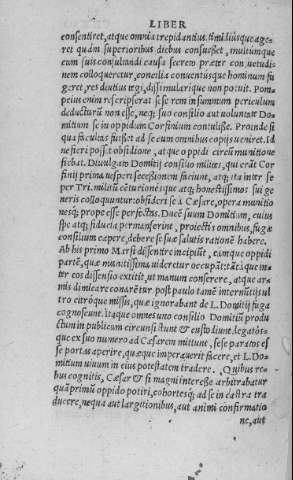 LIBER
consentiret, atque omnia trepidantius, timidiúsque age
ret quàm superioribus diebus consuesset, multumque
cum suis consultandi causa secreto præter consuetudi
nem colloqueretur, concilia conuentusque hominum fu
geret, res diutius tegi, dissimularique non potuit. Pom
peius enim rescripserat sese rem in summum periculum
deducturum non esse, neq; suo consilio aut voluntate Do
mitium se in oppidum Corfinium contulisse. Proinde si
qua facultas fuisset ad se cum omnibus copijs veniret. Id
ne fieri posset obsidione, atque oppidi circummunitione
fiebat. Diuulgato Domitij consilio milites, qui erant Cor
finij prima vesperi secessionem faciunt, atq; ita inter se
per Tri. militum centurionesque atq; honestissimos sui ge
neris colloquuntur: obsideri se à Cæsare, opera munitio
nesq; prope esse perfectas. Ducem suum Domitium, cuius
spe atq; fiducia permanserint, proiectis omnibus, fugæ
consilium capere, debere se suæ salutis rationem habere.
Ab his primo Marsi dissentire incipiunt, eamque oppidi
partem, quæ munitissima videretur occupant: tantaque in-
ter eos dissensio extitit, ut manum conserere, atque ar-
mis dimicare conarentur. post paulo tamen internuntijs ul
tro citróque missis, quæ ignorabant de L. Domitij fuga
cognoscunt. Itaque omnes uno consilio Domitium produ
ctum in publicum circunsistunt & custodiunt. legatós-
que ex suo numero ad Cæsarem mittunt, sese paratos es
se portas aperire, quæque imperauerit facere, et L. Do-
mitium uiuum in eius potestatem tradere. Quibus re-
bus cognitis, Cæsar & si magni interesse arbitrabatur
quàm primum oppido potiri, cohortesq; ad se in castra tra
ducere, ne qua aut largitionibus, aut animi confirmatio
ne, aut